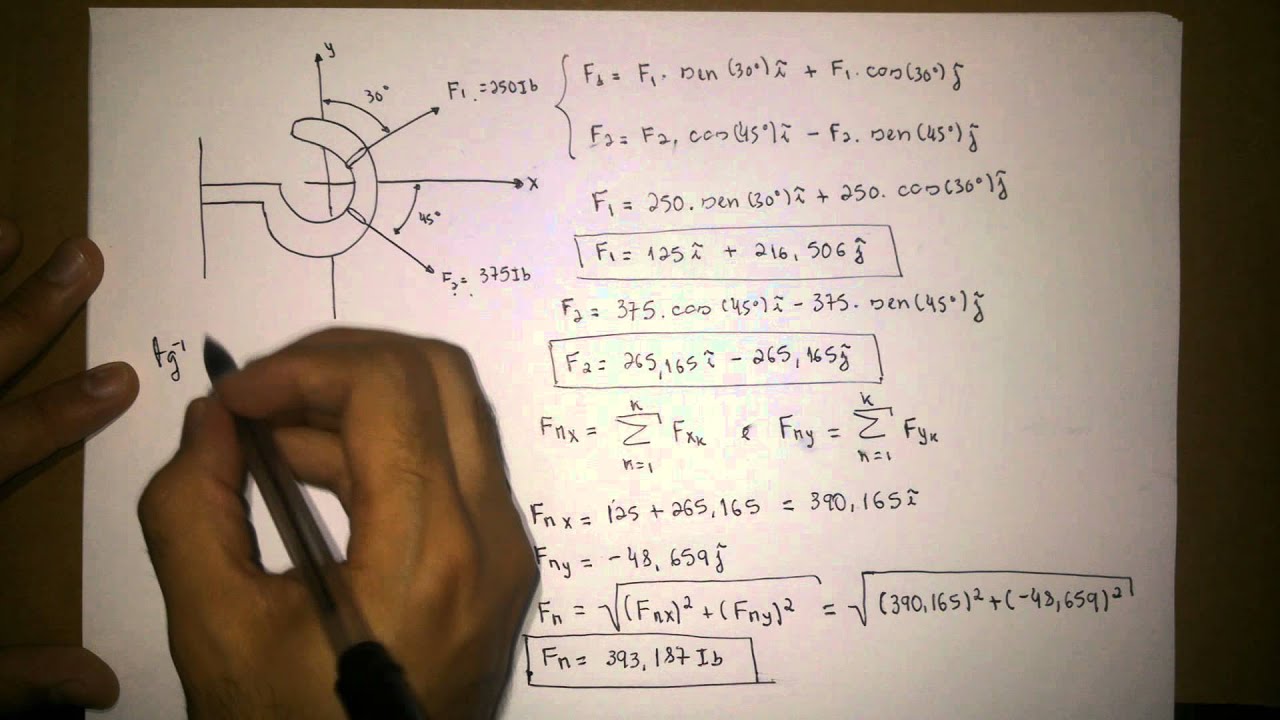 y
30°
F₁ = 250Ib
x
45°
F₂ = 375Ib
tg⁻¹
F₁ = F₁ . sen (30°) î + F₁ . cos (30°) ĵ
F₂ = F₂ . cos (45°) î - F₂ . sen (45°) ĵ
F₁ = 250 . sen (30°) î + 250 . cos (30°) ĵ
F₁ = 125 î + 216,506 ĵ
F₂ = 375 . cos (45°) î - 375 . sen (45°) ĵ
F₂ = 265,165 î - 265,165 ĵ
Fnx = K Σ n=1 Fxₖ e Fny = K Σ n=1 Fyₖ
Fnx = 125 + 265,165 = 390,165 î
Fny = -48,659 ĵ
Fn = √(Fnx)² + (Fny)² = √(390,165)² + (-48,659)²
Fn = 393,187 Ib